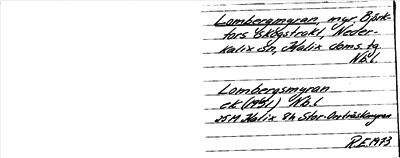 Lombergmyran, myr, Björk-
fors skogstrakt, Neder-
kalix sn, Kalix doms.tg
Nb.l.
Lombergsmyran
ek (1951) Nb.l
25M Kalix 8h Stor-Onträskmyran
R.E. 1973